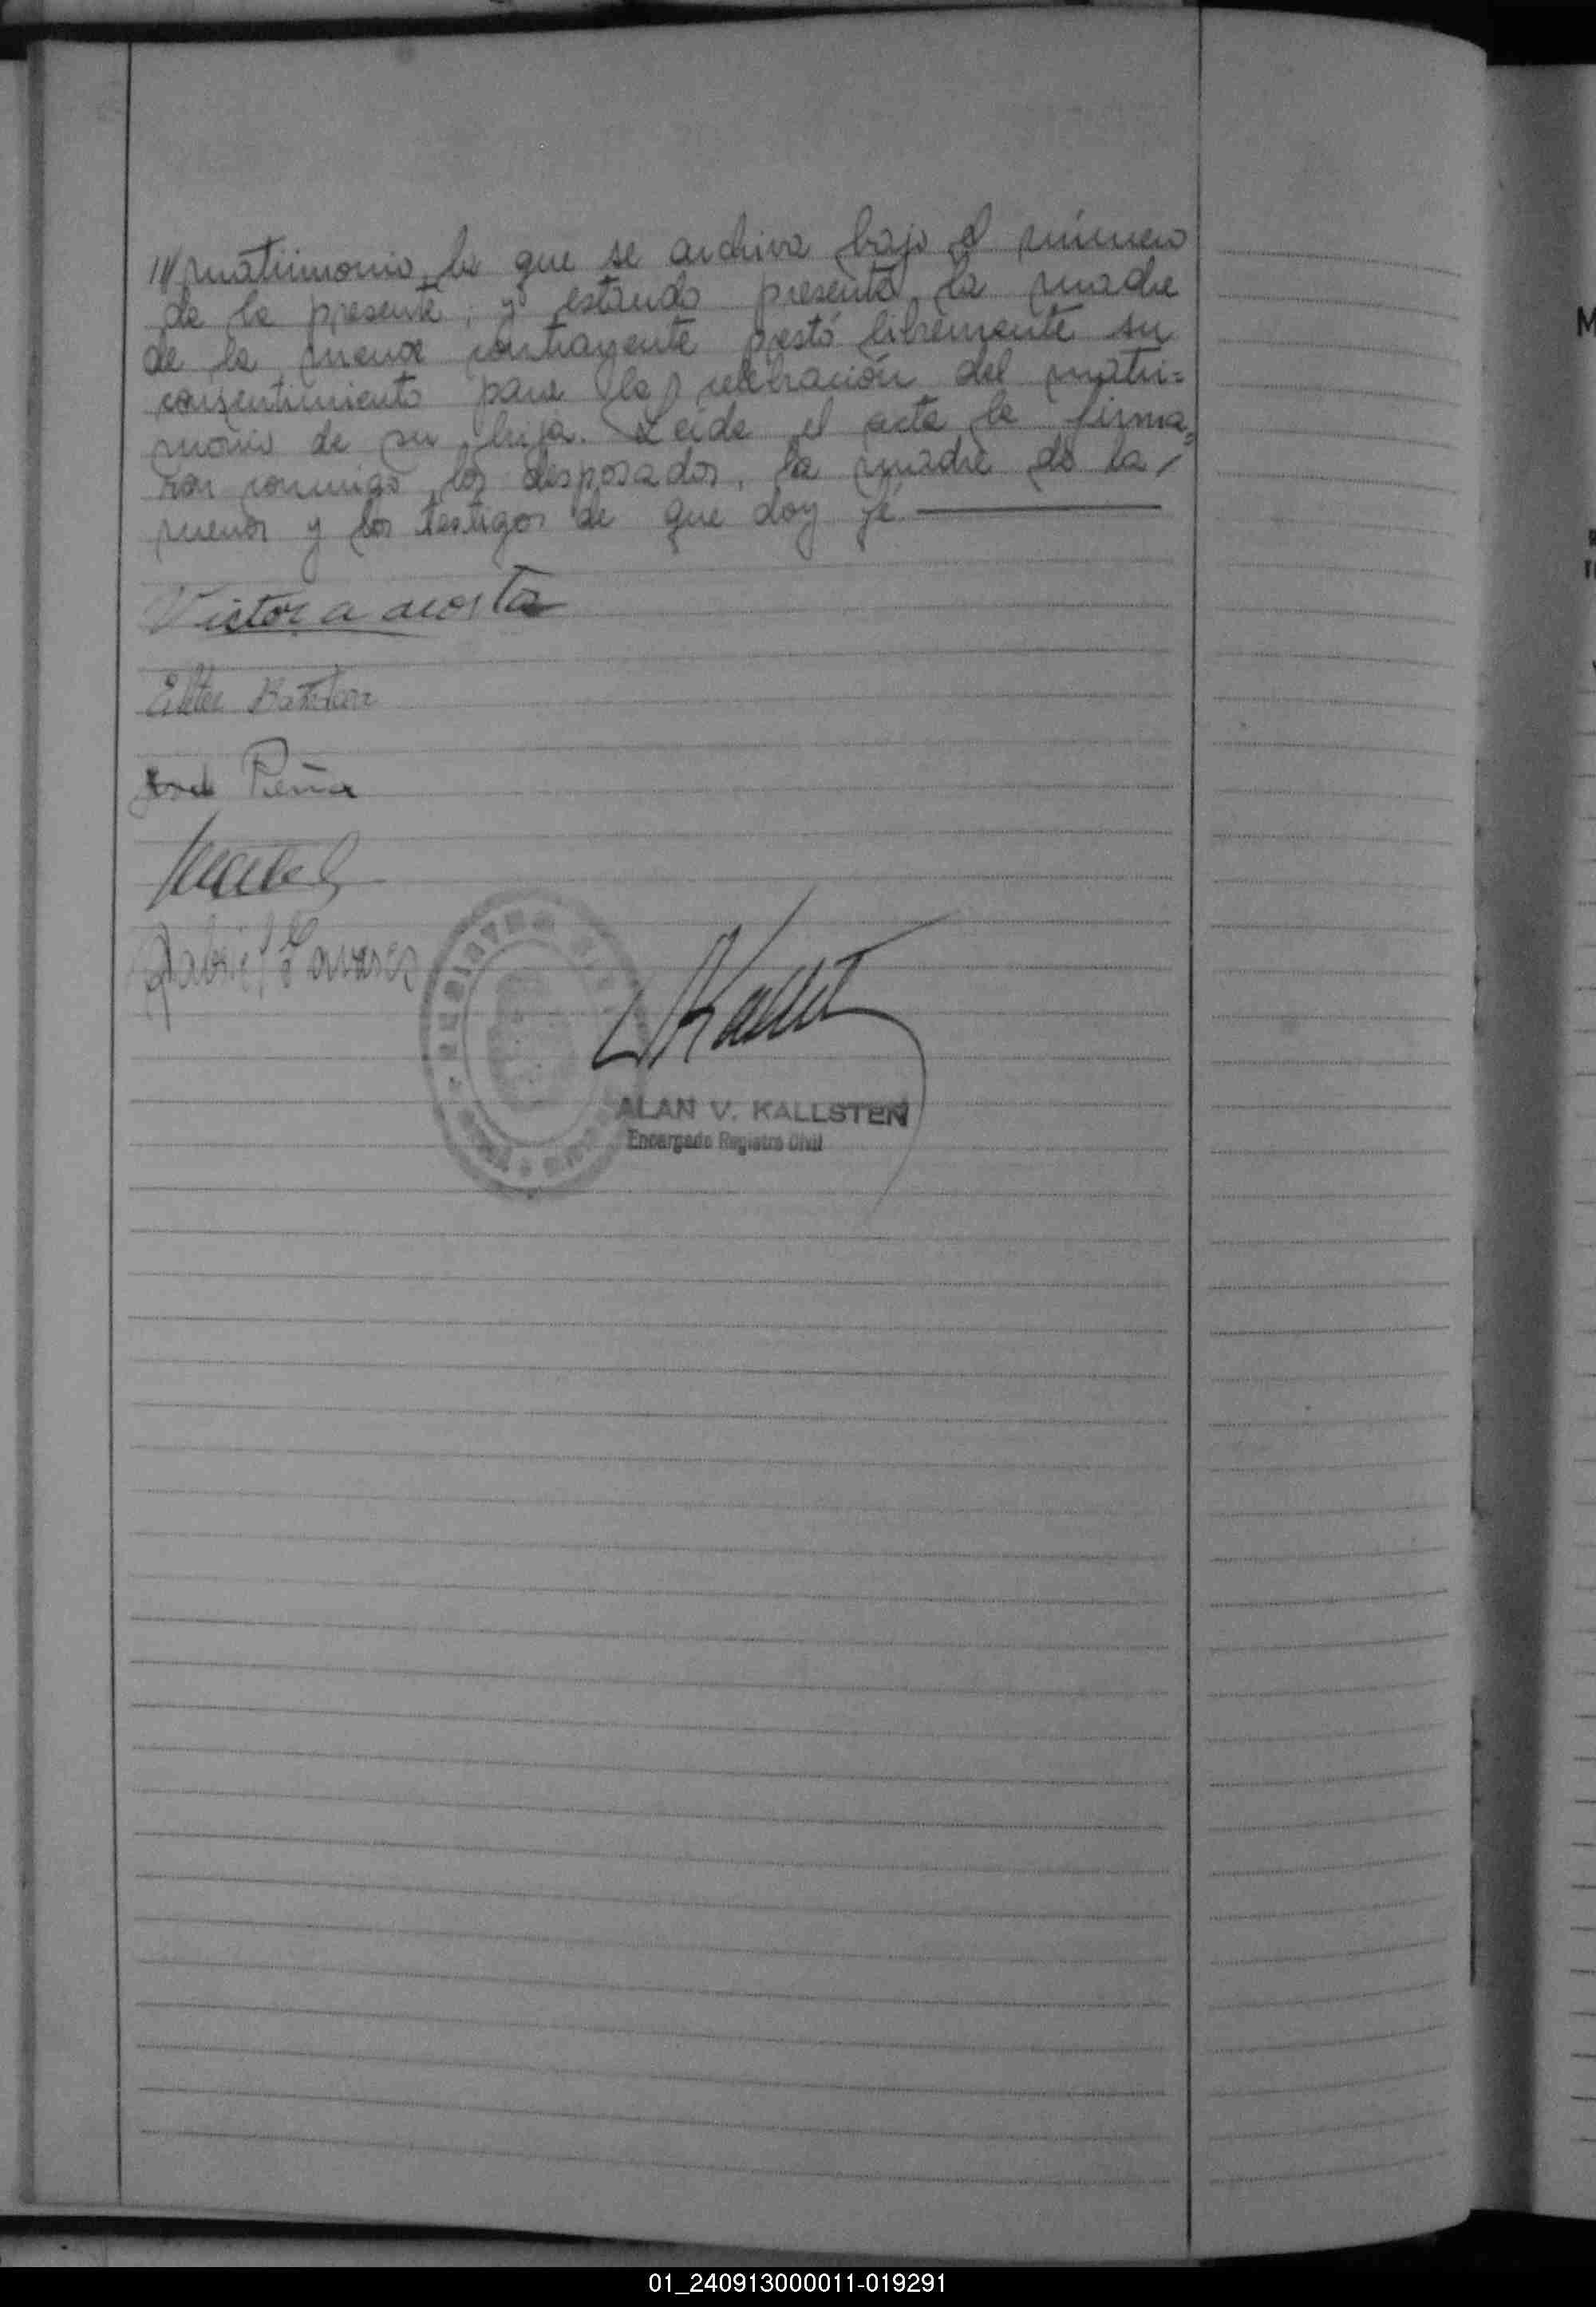 /// matrimonio, la que se archiva bajo el número
de la presente; y estando presente la madre
de la menor contrayente prestó libremente su
consentimiento para la celebración del matri=
monio de su hija. Leida el acta la firma=
ron conmigo los desposados, la madre de la
menor y los testigos de que doy fé
Victor a acosta
Peña
Gabriel
ALAN V. KALLSTEN
Encargado Registro Civil
REGISTRO
M
01_240913000011-019291